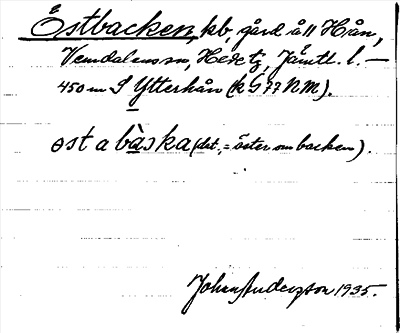 Östbacken, kb, gård å 11 Hån,
Vemdalens sn, Hede tg, Jämtl. l. —
450 m S Ytterhån (k G 77 N M).
østabàska (det., = öster om backen).
John Anderzson 1935.